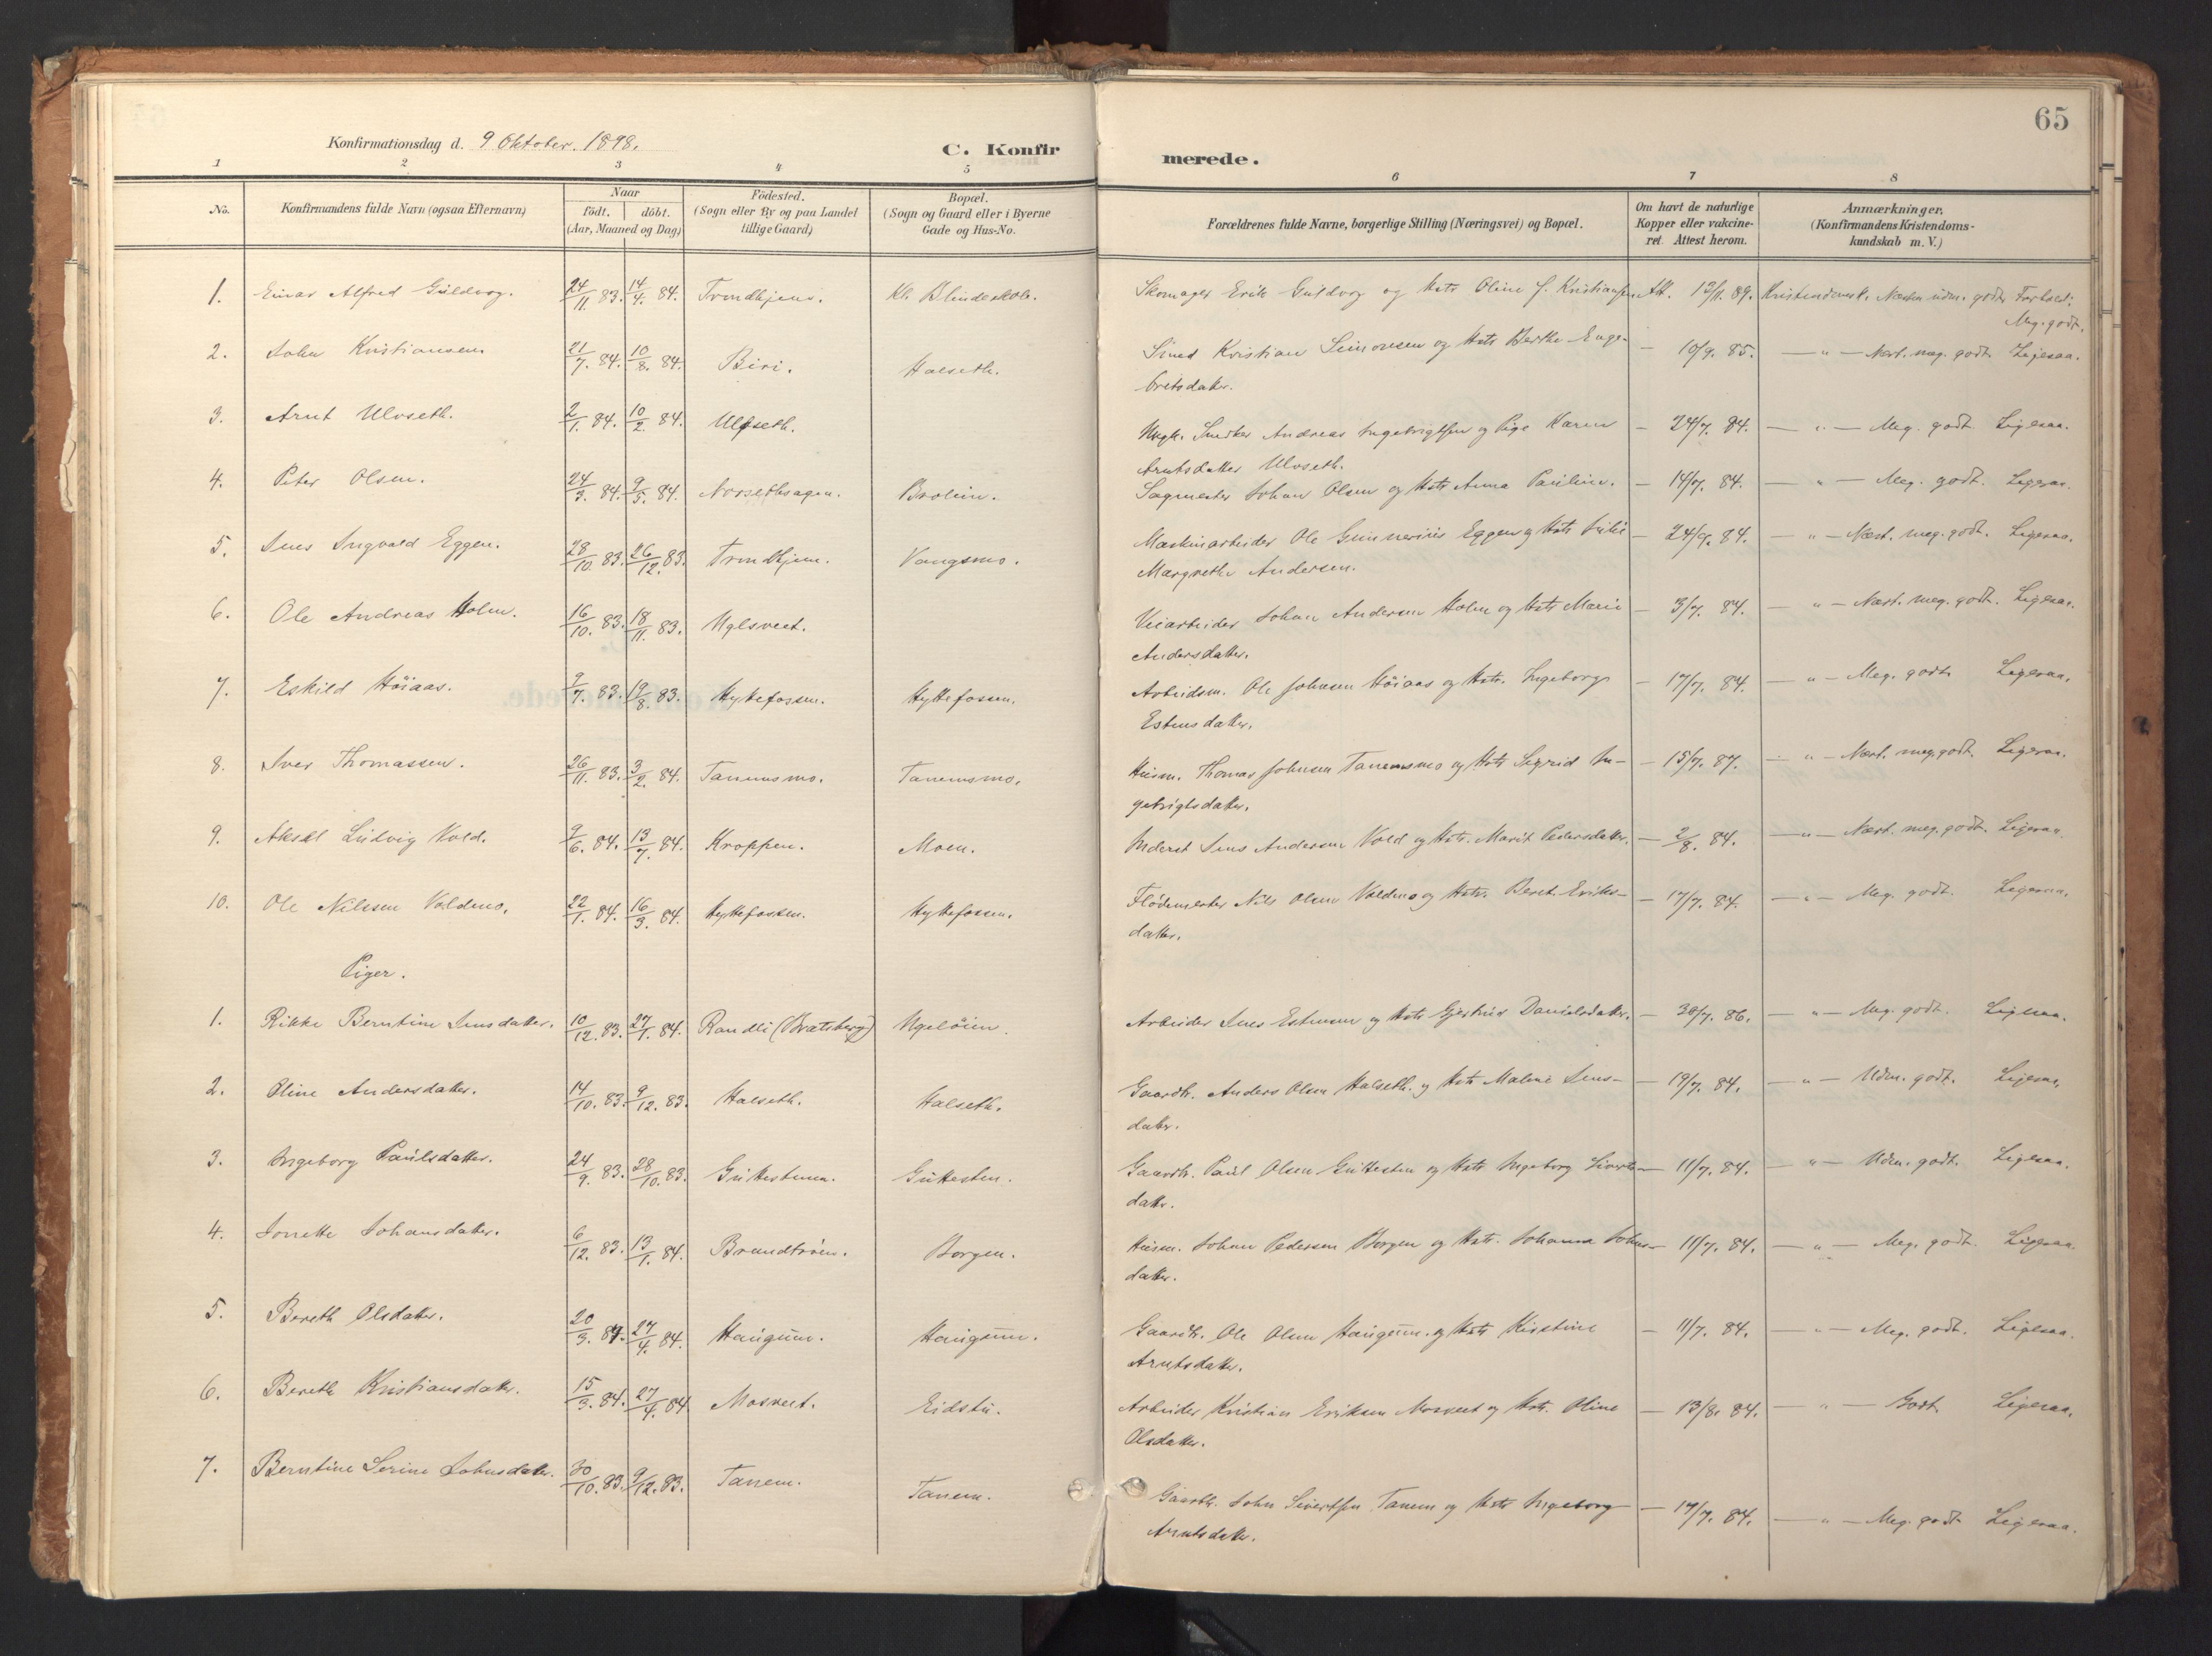 65
Konfirmationsdag d. 9 Oktober. 1898.
C. Konfirmerede.
1 2 3 4 5 6 7 8
No. Konfirmandens fulde Navn (ogsaa Efternavn) Naar födt. döbt. (Aar, Maaned og Dag) Födested. (Sogn eller By og paa Landet tillige Gaard) Bopæl. (Sogn og Gaard eller i Byerne Gade og Hus-No. Forældrenes fulde Navne, borgerlige Stilling (Næringsvei) og Bopæl. Om havt de naturlige Kopper eller vakcineret. Attest herom. Anmærkninger. (Konfirmandens Kristendomskundskab m. V.)
1. Einar Alfred Guldvog. 24/11. 83. 14/4. 84. Trondhjem. Kl. Blindeskole. Skomager Erik Guldvog og Hstr Oline f. Kristiansen Att. 13/11. 89. Kristendomsk. Næsten udm. godt Forhold:
Meg. godt.
2. John Kristiansen 21/7. 84. 10/8. 84. Biri. Halseth. Smed Kristian Simonsen og Hstr Berthe Enge- — 10/9. 85. — " — Næst. meg. godt. Ligesaa.
bretsdatter.
3. Arnt Ulvseth. 2/1. 84. 10/2. 84. Ulfseth. Ungk. Snedker Andreas Ingebrigtsen og Pige Karen — 24/7. 84. — " — Meg. godt Ligesaa.
Arntsdatter Ulvseth.
4. Peter Olsen. 24/3. 84. 9/5. 84. Brolien. Sagmester Johan Olsen og Hstr Anna Pauline. — 14/7. 84. — " — Meg. godt. Ligesaa.
5. Jens Ingvald Eggen. 28/10 83. 26/12. 83. Trondhjem. Vangsmo. Maskinarbeider Ole Gunnerius Eggen og Hstr Julie — 24/9. 84. — " — Næst. meg. godt. Ligesaa.
Margrethe Andersen.
6. Ole Andreas Holm. 16/10. 83. 18/11. 83. Uglsveet. Veiarbeider Johan Andersen Holm og Hstr Marie — 3/7. 84. — " — Næst. meg. godt. Ligesaa.
Andersdatter.
7. Eskild Höiaas. 9/7. 83. 19/8. 83. Hyttefossen. Hyttefossen. Arbeidsm. Ole Johnsen Höiaas og Hstr. Ingeborg — 17/7. 84. — " — Meg. godt Ligesaa.
Estensdatter.
8. Iver Thomassen. 26/11. 83. 3/2. 84. Tanemsmo. Tanemsmo. Husm. Thomas Johnsen Tanemsmo og Hstr Sigrid In- — 15/7. 87. — " — Næst. meg. godt. Ligesaa.
gebrigtsdatter.
9. Aksel Ludvig Vold. 9/6. 84. 13/7. 84. Kroppen. Moen. Inderst Jens Andersen Vold og Hstr. Marit Pedersdatter. — 2/8. 84. — " — Næst. meg. godt. Ligesaa.
10. Ole Nilssen Voldmo. 22/1. 84. 16/3. 84. Hyttefossen. Hyttefossen. Flödemester Nils Olsen Voldmo og Hstr. Beret Eriks- — 17/7. 84. — " — Meg. godt. Ligesaa.
datter.
Piger.
1. Rikke Berntine Jensdatter. 10/12. 83. 27/1. 84. Randli (Bratsberg) Ugelöien. Arbeider Jens Estensen og Hstr Gjertrud Danielsdatter. — 30/7. 86. — " — Meg. godt. Ligesaa.
2. Oline Andersdatter. 14/10. 83. 9/12. 83. Halseth. Halseth. Gaardb. Anders Olsen Halseth. og Hstr Malene Jens- — 19/7. 84. — " — Udm. godt. Ligesaa.
datter.
3. Ingeborg Paulsdatter. 24/9. 83. 28/10. 83. Guttesten. Gaardb. Paul Olsen Guttesten og Hstr Ingeborg — 11/7. 84. — " — Udm. godt. Ligesaa.
datter.
4. Jonette Johansdatter. 6/12. 83. 13/1. 84. Brandtröen. Borgen. Husm. Johan Pedersen Borgen og Hstr. Johanna Johns- — 11/7. 84. — " — Meg. godt Ligesaa.
datter.
5. Bereth Olsdatter. 20/3. 84. 27/4. 84. Haugum. Haugum. Gaardb. Ole Olsen Haugum. og Hstr Kirstine — 11/7. 84. — " — Meg. godt. Ligesaa.
Arntsdatter.
6. Bereth Kristiansdatter. 15/3. 84. 27/4. 84. Mosveet. Eidstu. Arbeider Kristian Eriksen Mosveet og Hstr. Oline — 13/8. 84. — " — Godt. Ligesaa.
Olsdatter.
7. Berntine Serine Johnsdatter. 30/10. 83. 9/12. 83. Tanem. Tanem. Gaardb. John Sivertsen Tanem og Hstr Ingeborg — 17/7. 84. — " — Meg. godt Ligesaa.
Arntsdatter.